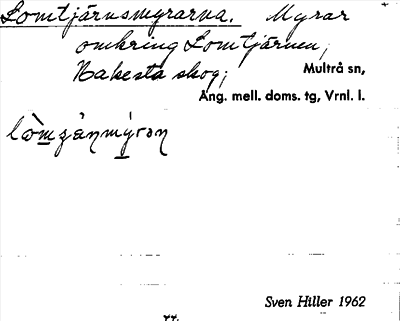 Lomtjärnsmyrarna. Myrar
omkring Lomtjärnen,
Bakesta skog;
Multrå sn,
Ång. mell. doms. tg, Vrnl. l.
Sven Hiller 1962